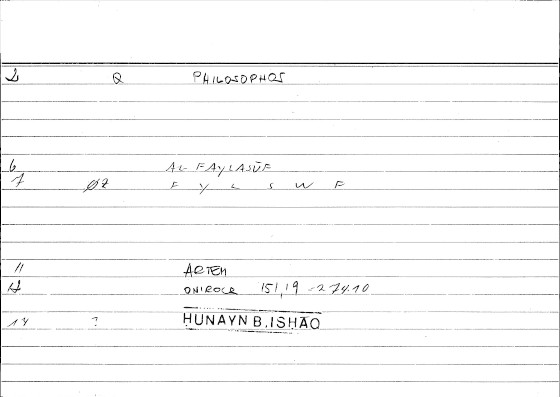 2 Q PHILOSOPHOS
6 AL FAYLASŪF
7 ØZ F Y L S W F
11 ARTEM
12 ONIROCR 151,19 = 274.10
14 ? HUNAYN B. ISHAQ